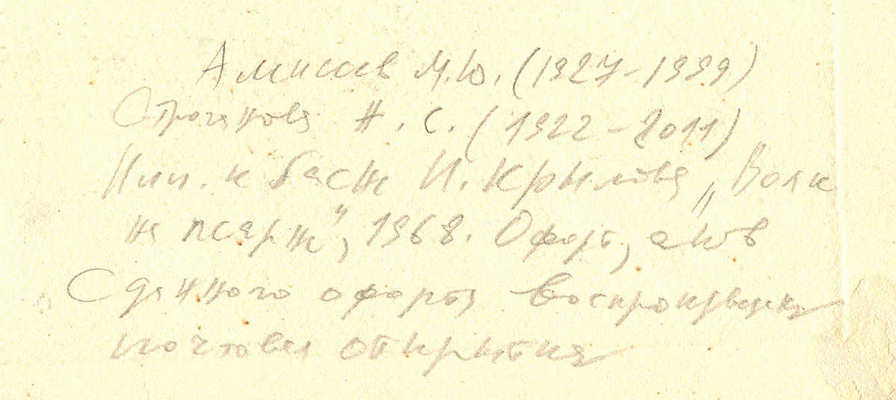 Алишев М.Ю. (1927-1999)
Строганова Н.С. (1922-2011)
Илл. к басне И. Крылова „Волк
на псарне", 1968. Офорт, акв
С данного офорта воспроизведена
почтовая открытка